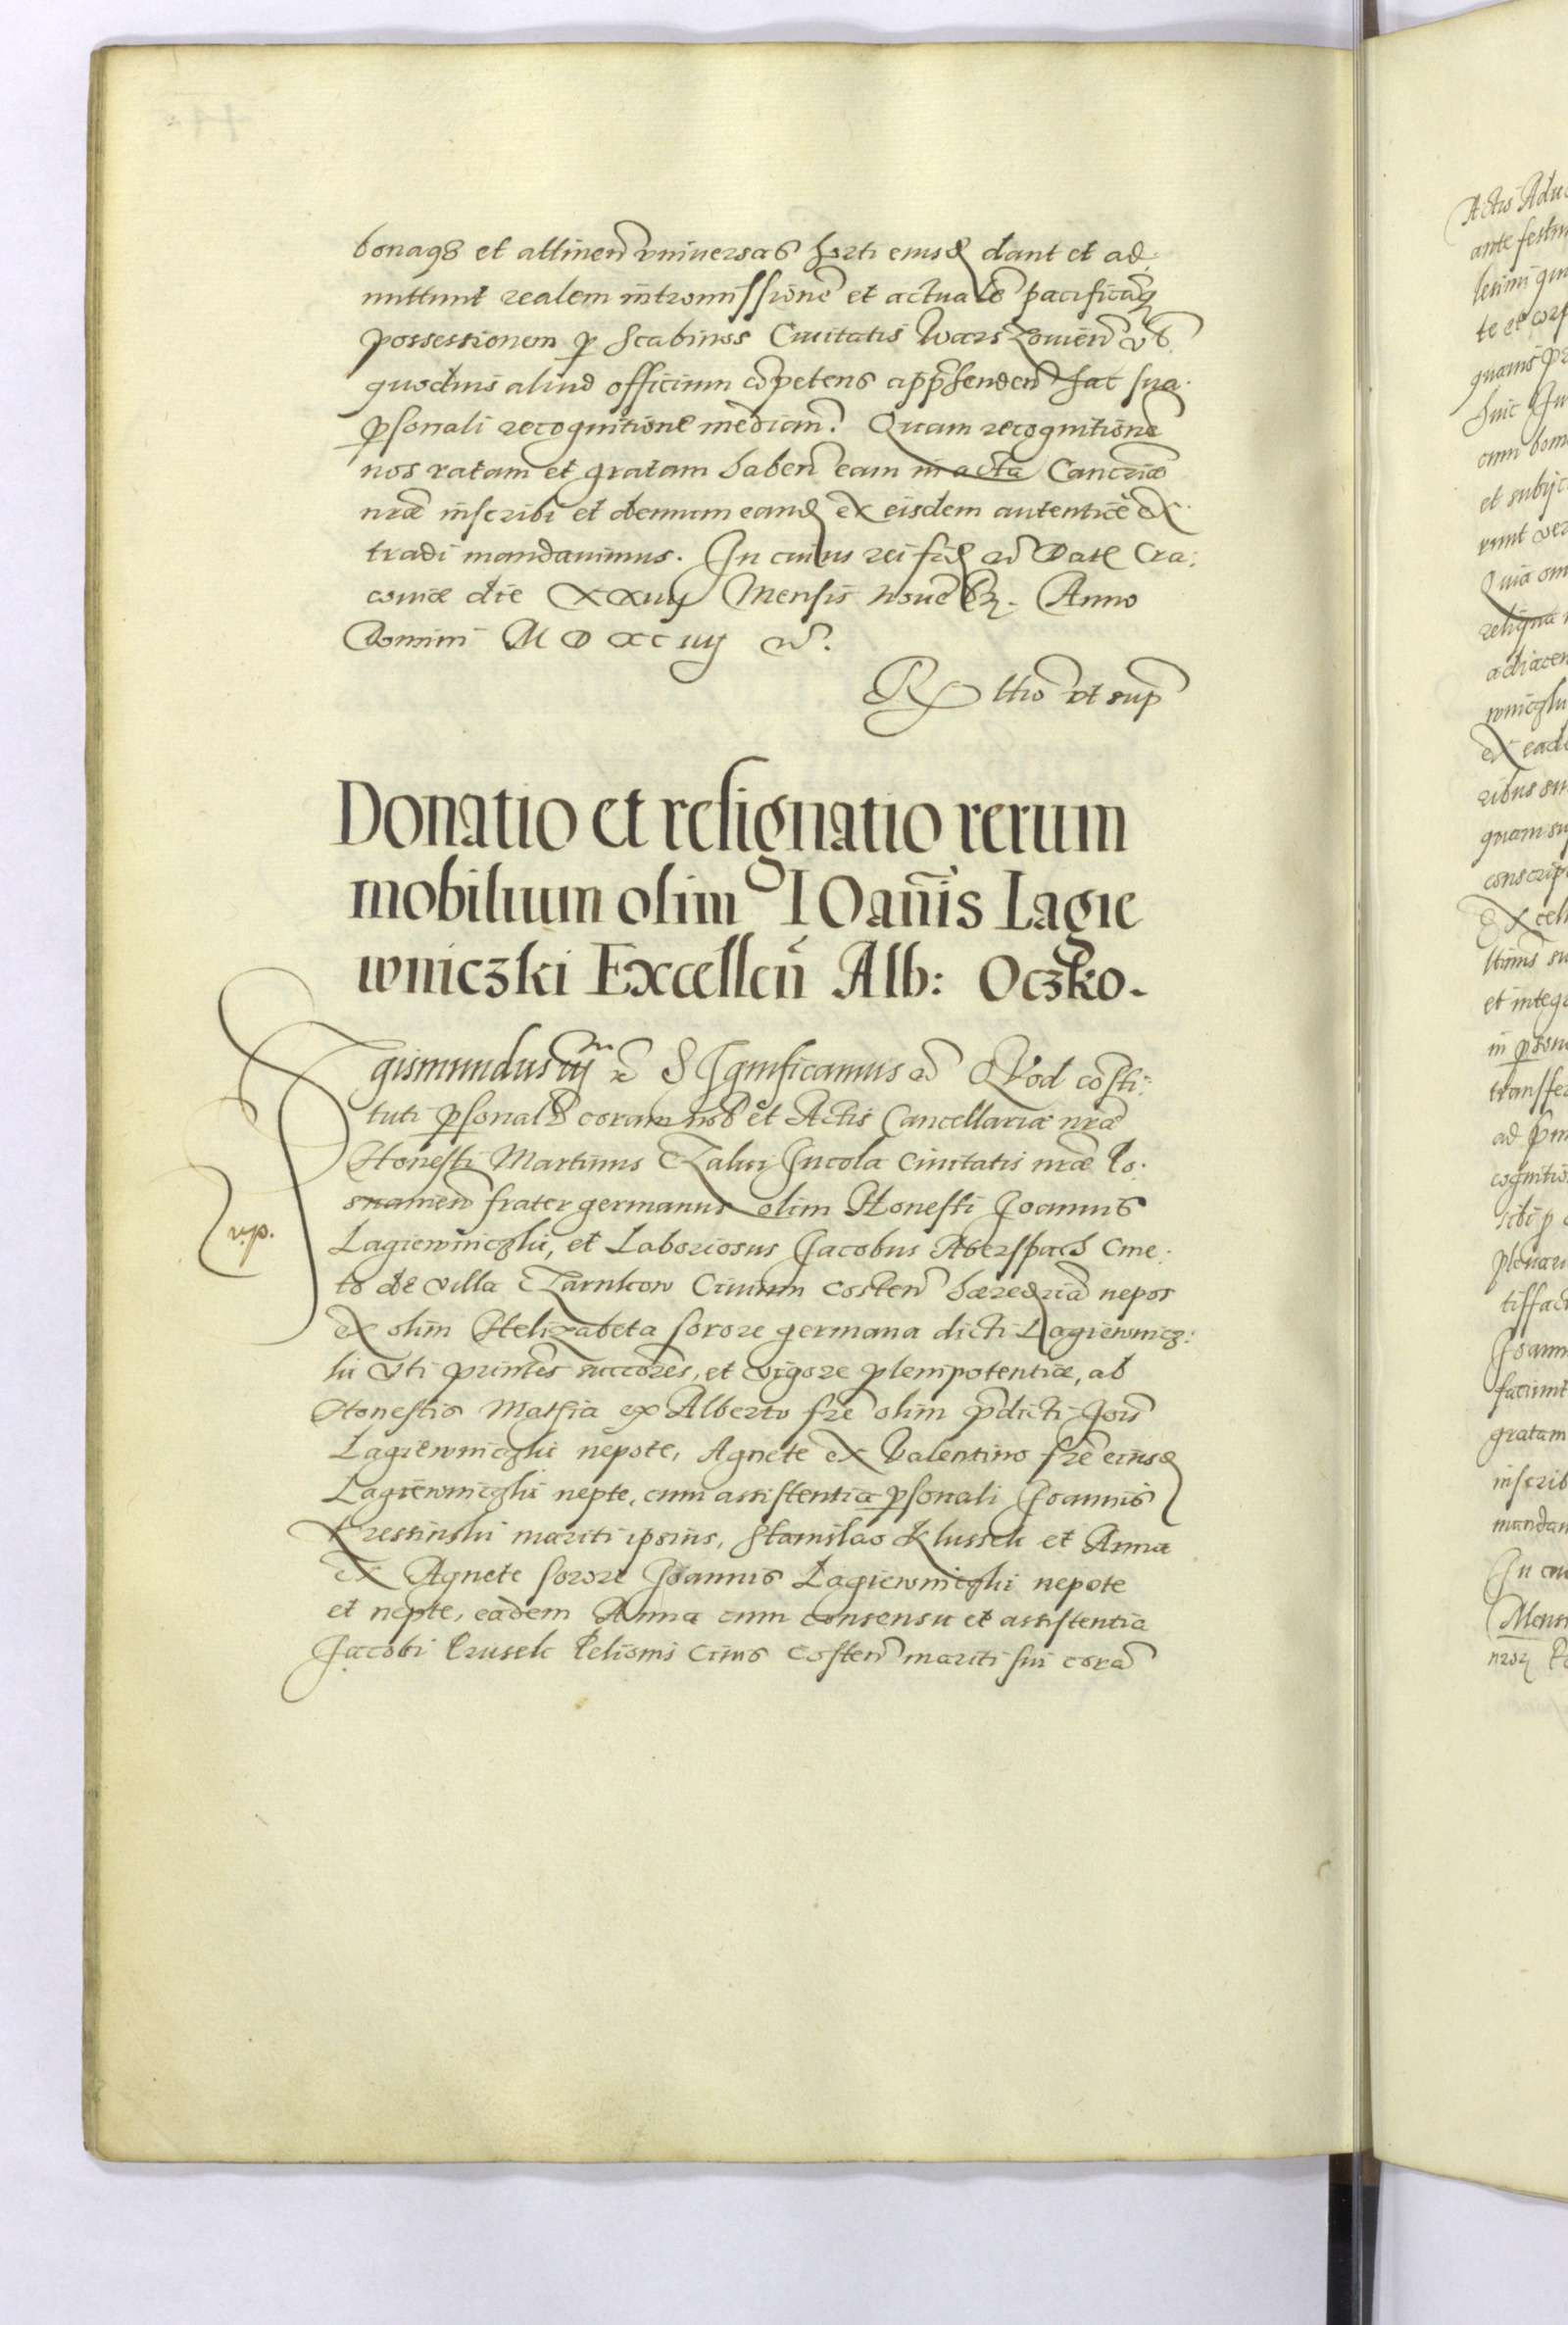 bonaqз et attineñ vniuersas horti eiusđ dant et ad
mittunt realem intromissionē et actualē pacificāqз
possessionem p Scabinos Ciuitatis Warszouieñ vł
quoduis aliud officium cōpetens apphendeñ hac sua
psonali recognitione mediañ. Quam recognitionē
nos ratam et gratam habeñ eam in acta Cancriæ
nræ inscribi et demum eanđ ex eisdem autenticē ex
tradi mandauimus. In cuius rei fiđ etc Dat Cra:
couiæ die XXiiij Mensis Nouēbr. Anno
Domini M D XC iiij etc.
Rtio ut sup
Donatio et resignatio rerum
mobilium olim IOañis Lagie
wniczki Excelleñ Alb: Oczko.
Sigismundus iij etc Significamus etc Quod cōsti:
tuti psonalr coram nob et Actis Cancellariæ nræ
Honesti Martinus Czalui Incola Ciuitatis nræ Po:
snanieñ frater germanus olim Honesti Joannis
Lagiewniczki, et Laboriosus Jacobus Aberspach Cme:
to de villa Czarnkow Ciuium Costeñ hæređria nepos
ex olim Helizabeta sorore germana dicti Lagiewnicz:
ki vti primes succores, et vigore plenipotentiæ, ab
Honestis Mathia ex Alberto fre olim pdicti Jois
Lagiewniczki nepote, Agnete ex Valentino fre eiusđ
Lagiewniczki nepte, cum assistentia psonali Joannis
Kressinski mariti ipsius, Stanislao Klussek et Anna
ex Agnete sorore Joannis Lagiewniczki nepote
et nepte, eadem Anna cum consensu et assistentia
Jacobi Prusek Pelionis Ciuis Costeñ mariti sui corā
v.p.